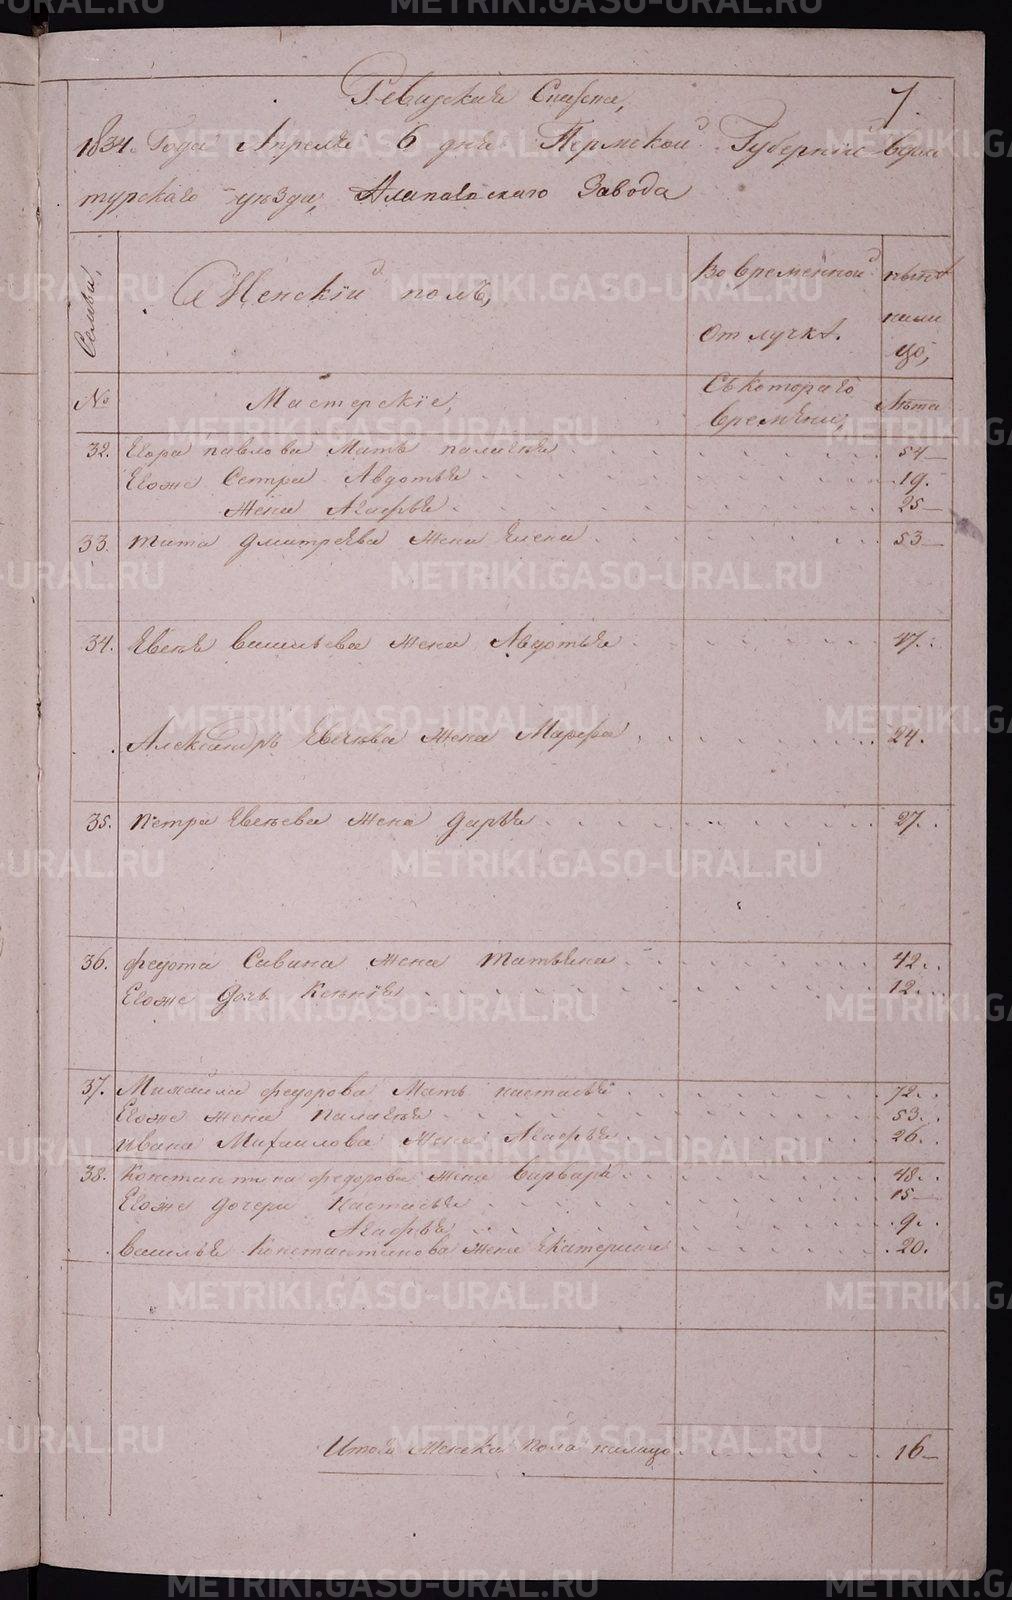 Ревизская Сказка,
7
1834 Года Апреля 6 дня Пермской Губернии Верхо
турскаго уезда, Алапаевскаго Завода
Семьи,
Женский полъ,
Во временной
отлучке.
ныне
нали
цо,
№
Мастерские,
Съ котораго
времени,
Лета
32. Егора павлова Мать палагея 54
Егоже Сестра Авдотья 19.
Жена Агафья 25
33. тита дмитреева жена Елена 53
34. Евсея Васильева жена Авдотья 47.
Александръ Евсеева жена Марфа 24.
35. петра Евсеева жена дарья 27.
36. федота Савина жена татьяна 42.
Егоже дочь Ксения 12.
37. Михаила федорова Мать настасья 72.
Егоже жена палагея 53.
ивана Михаилова жена Агафья 26.
38. Константина федорова жена Варвара 48.
Егоже дочери настасья 15
Агафья 9.
Василья Константинова жена Екатерина 20.
Итого женска пола налицо 16
METRIKI.GASO-URAL.RU